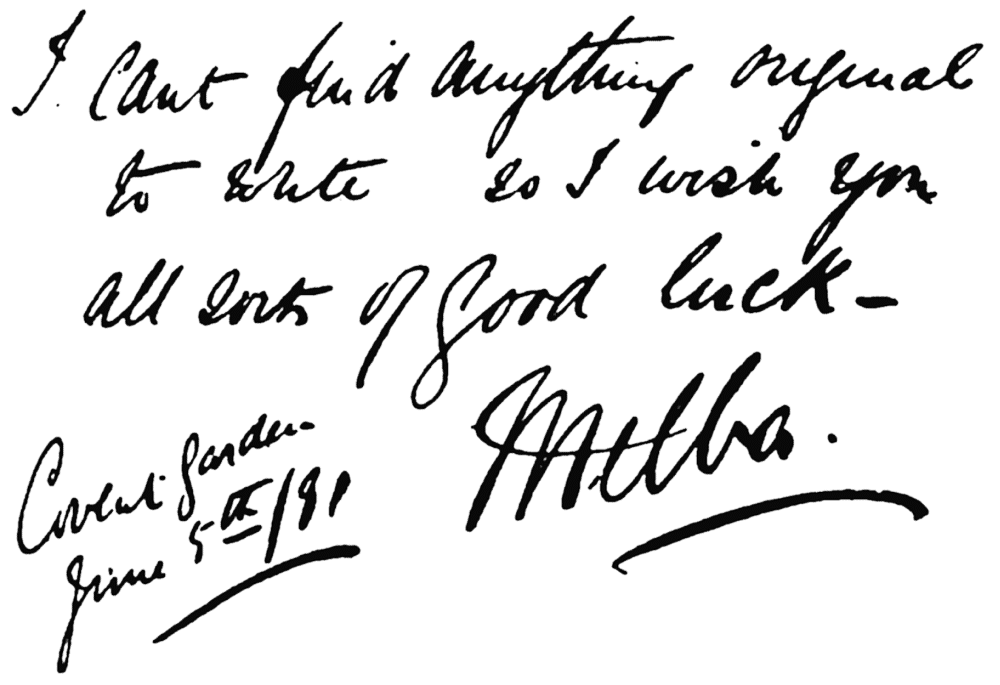 I cant find anything original
to write so I wish you
all sorts of good luck –
Melba.
Covent Garden
June 5th/91